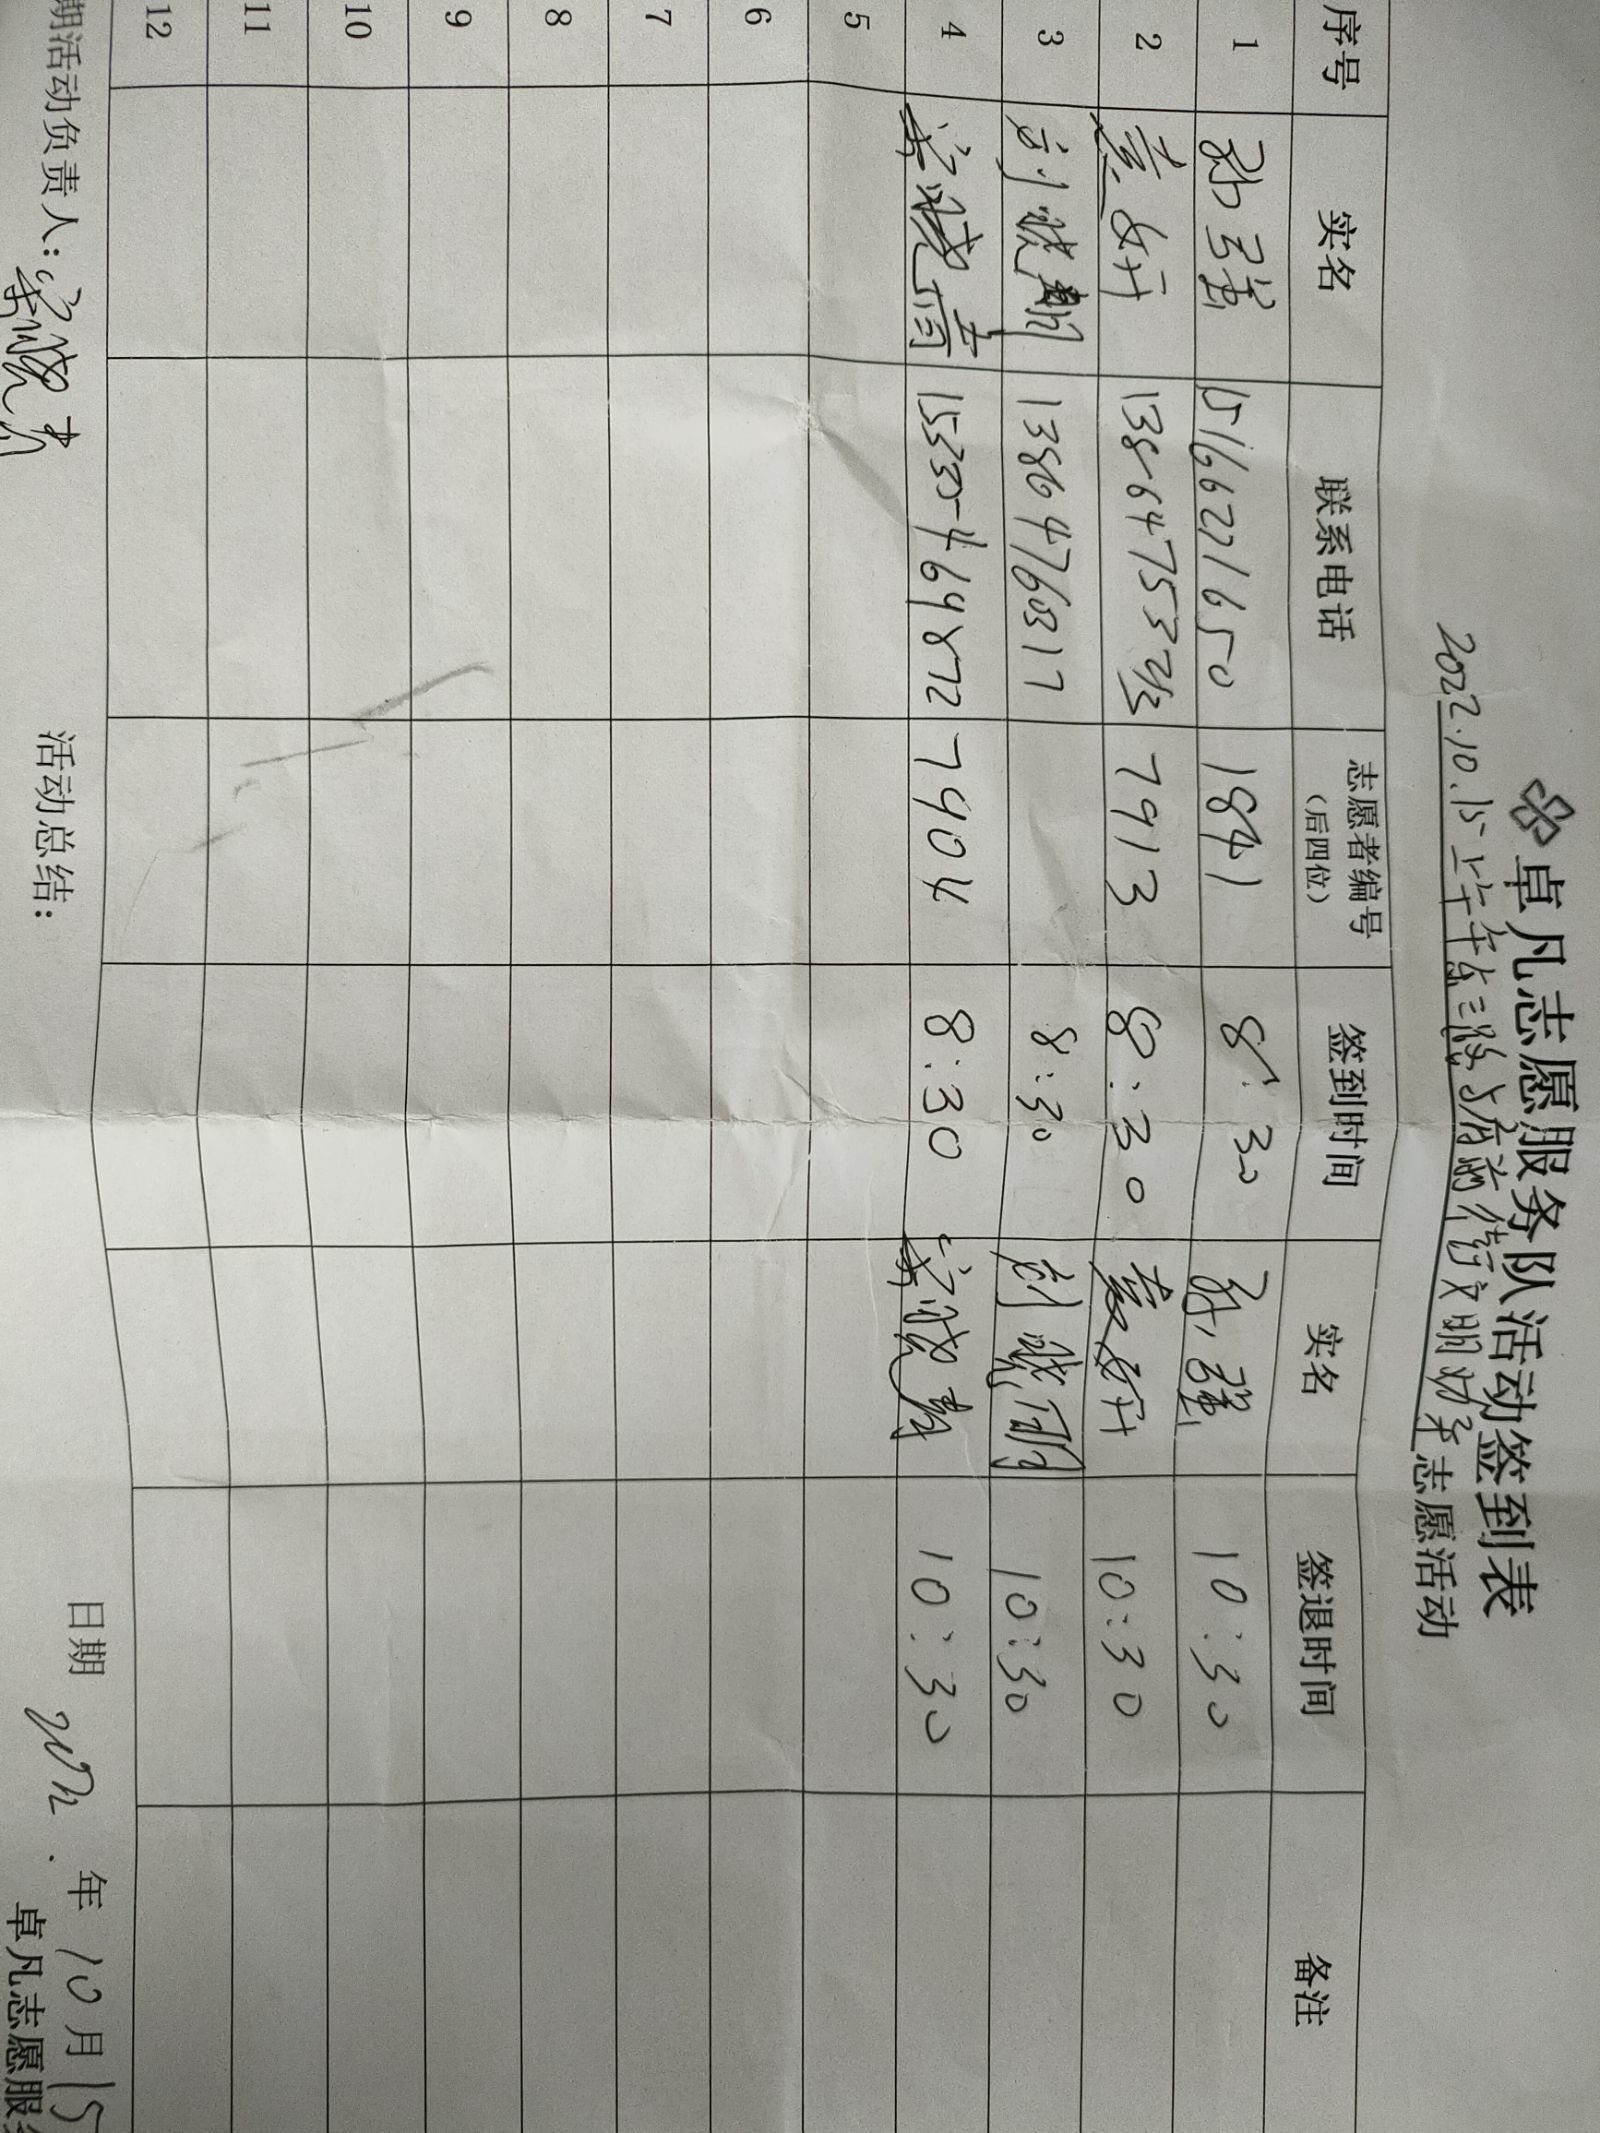 卓凡志愿服务队活动签到表
2022.10.15上午在三路与府前街文明劝导志愿活动
序号 实名 联系电话 志愿者编号（后四位） 签到时间 实名 签退时间 备注
1 15166271650 1841 8:30 10:30
2 7913 8:30 10:30
3 刘晓刚 13864760317 8:30 刘晓刚 10:30
4 梁晓青 15335469872 7904 8:30 梁晓青 10:30
5
6
7
8
9
10
11
12
期活动负责人：梁晓青 活动总结： 日期 2022.年10月15
卓凡志愿服